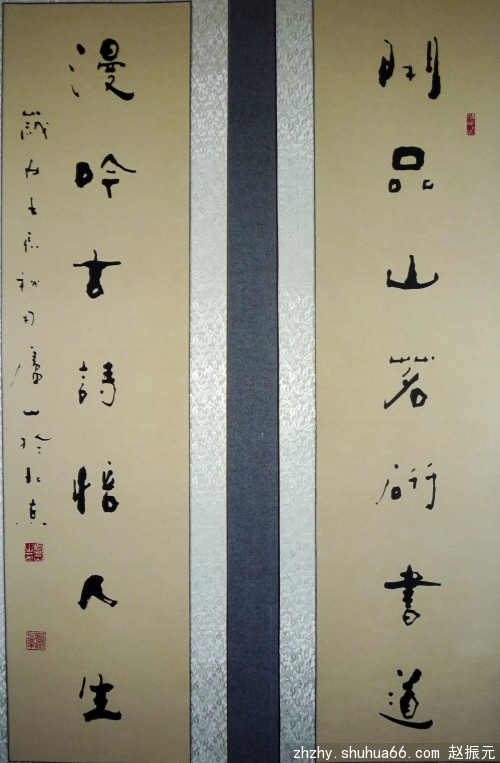 閑品山茗研書道
漫吟古詩悟人生
歲在壬辰秋月廬山於北京
zhzhy.shuhua66.com 赵振元